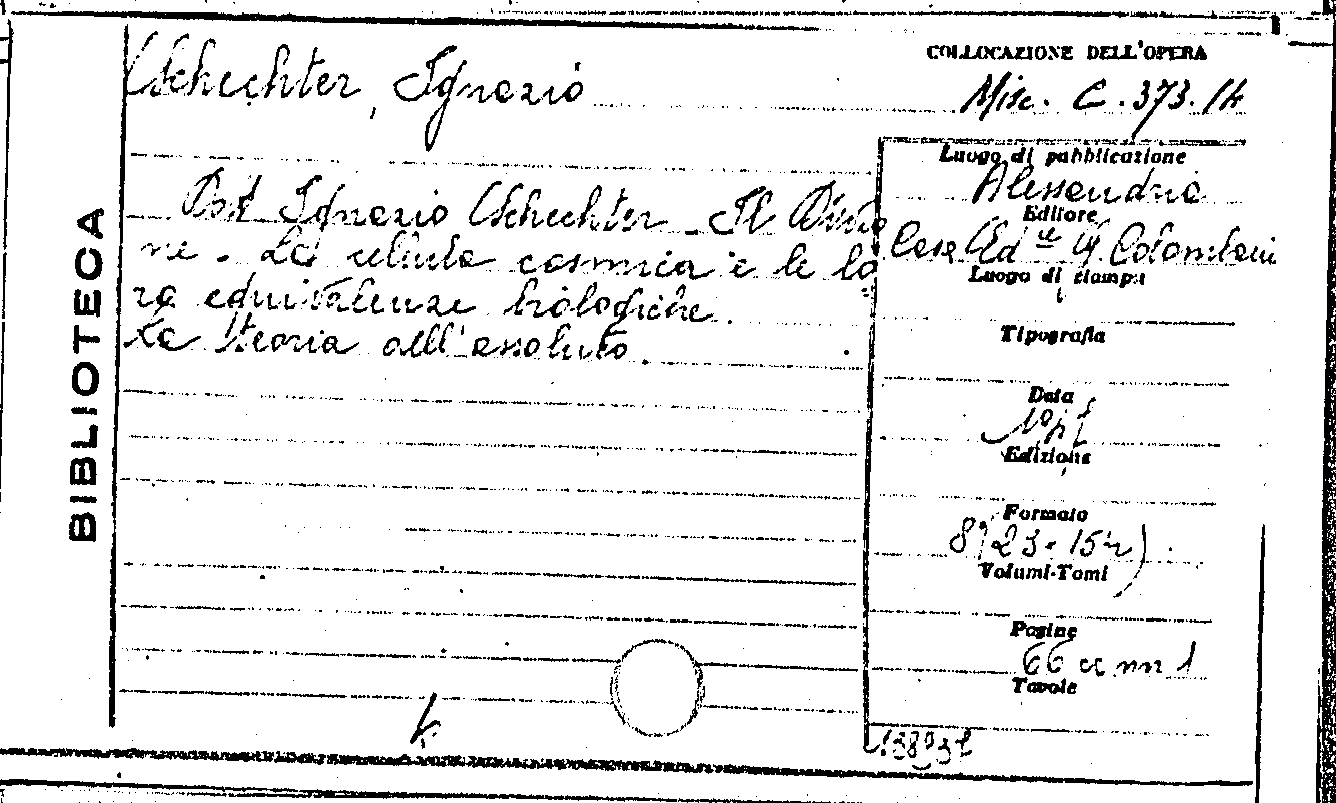 BIBLIOTECA
Schechter, Ignazio
COLLOCAZIONE DELL'OPERA
Misc. C. 373. 14
Dott Ignazio Schechter. Il Divie
ne. La cellula cosmica e le lo
ro equivalenze biologiche.
La teoria dell'assoluto.
Luogo di pubblicazione
Alessandria
Editore
Casa Ed.ce G. Colombani
Luogo di stampa
Tipografia
Data
Edizione
Formato
8°(23 × 15½)
Volumi-Tomi
Pagine
66 cc nn 1
Tavole